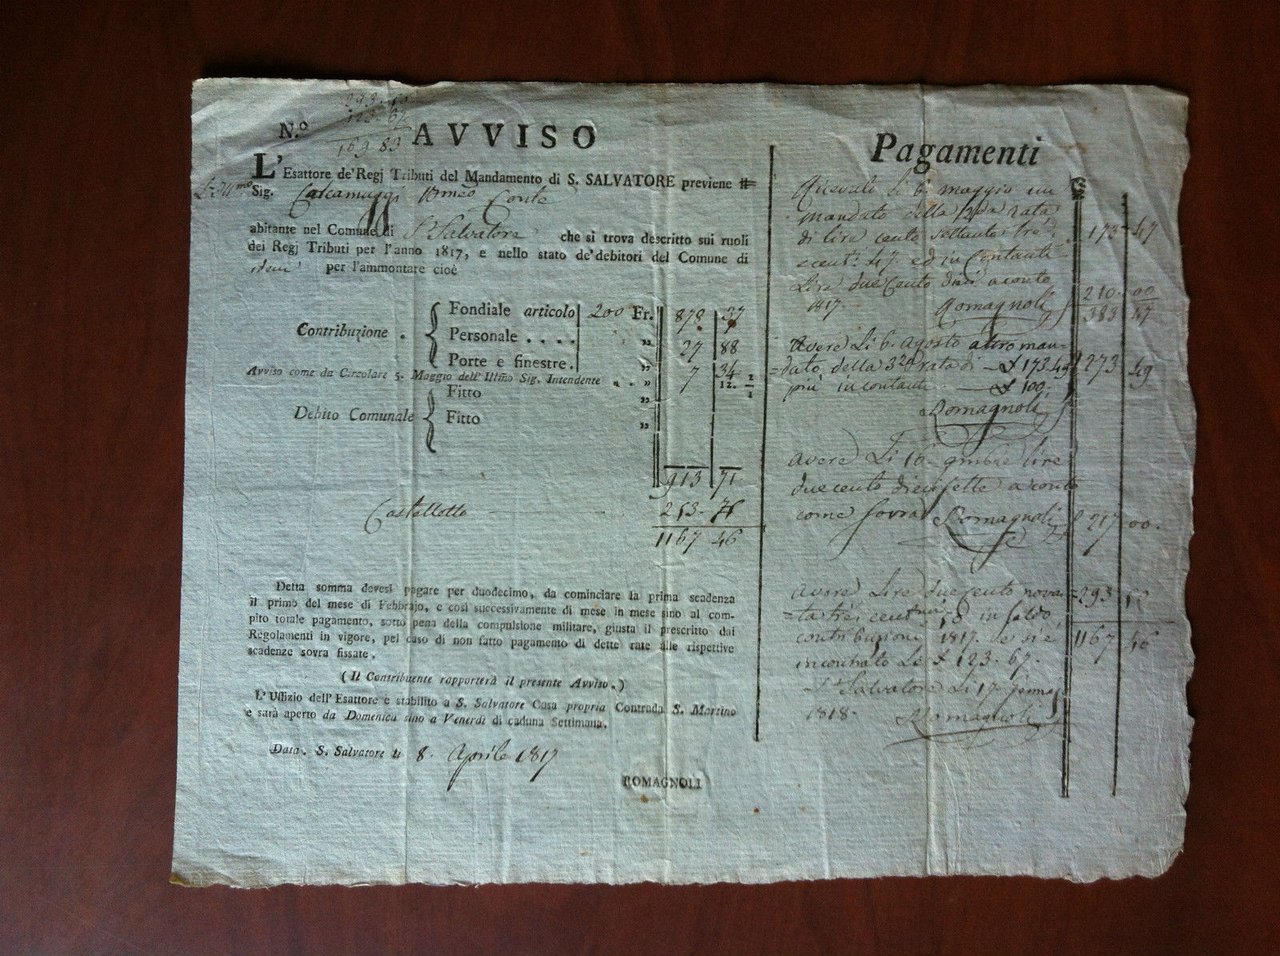 293. 12
123. 67
169 83
N.º AVVISO
L'Esattore de'Regj Tributi del Mandamento di S. SALVATORE previene il
Sig. Calcamuggi Conte
abitante nel Comune di S. Salvatore che si trova descritto sui ruoli
dei Regj Tributi per l'anno 1817, e nello stato de'debitori del Comune di
idem per l'ammontare cioè
Fondiale articolo 200 Fr. 878 37
Contribuzione . Personale . . . . „ 27 88
Porte e finestre. „ 7 34
Avviso come da Circolare 5. Maggio dell'Illmo Sig. Intendente . . „ 12. 1/2
Fitto „
Debito Comunale Fitto „
913 71
Castellotto 253. 75
1167 46
Detta somma devesi pagare per duodecimo, da cominciare la prima scadenza
il primo del mese di Febbrajo, e così successivamente di mese in mese sino al com-
pito totale pagamento, sotto pena della compulsione militare, giusta il prescritto dai
Regolamenti in vigore, pel caso di non fatto pagamento di dette rate alle rispettive
scadenze sovra fissate.
(Il Contribuente rapporterà il presente Avviso.)
L'Uffizio dell'Esattore è stabilito a S. Salvatore Casa propria Contrada S. Martino
e sarà aperto da Domenica sino a Venerdì di caduna Settimana.
Data. S. Salvatore li 8. Aprile 1817
ROMAGNOLI
Pagamenti
Ricevuti Li 6. maggio un
mandato della 2da rata
di lire cento settanta tre 173 47
e cent. 47 ed in contanti
Lire due cento dieci a conto 210 00
1817. Romagnoli 383 47
Avere Li 6. agosto altro man-
dato della 3za rata di £ 173.49 273 49
più in contanti £ 100.
Romagnoli
avere Li 16 9mbre lire
due cento diecisette a conto
come sovra Romagnoli 217 00.
avere Lire due cento novan- 293
ta trè cent. in saldo
contribuzione 1817. 1167 46
incontrato Li £ 123. 67.
S. Salvatore Li 17. genn.
1818. Romagnoli